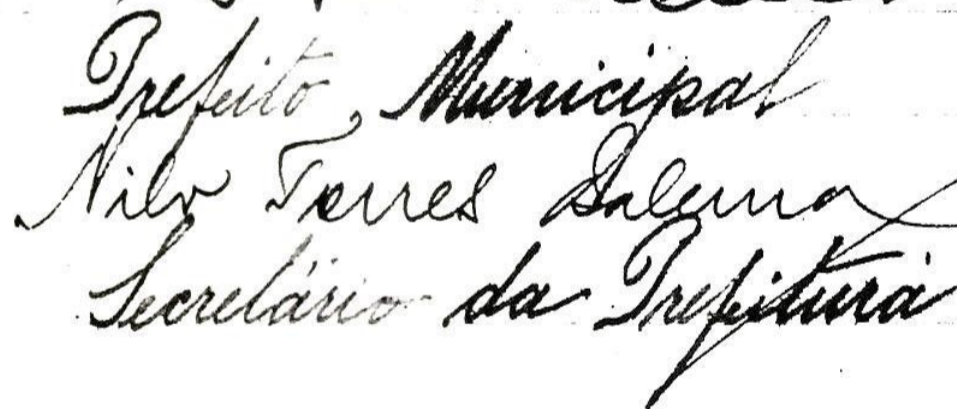 Prefeito Municipal
Nilo Torres Salerna
Secretário da Prefeitura